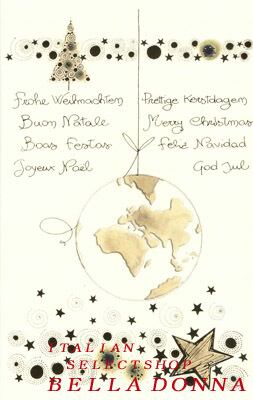 Frohe Weihnachten
Buon Natale
Boas Festas
Joyeux Noël
Prettige Kerstdagen
Merry Christmas
Feliz Navidad
God Jul
ITALIAN
SELECTSHOP
BELLA DONNA